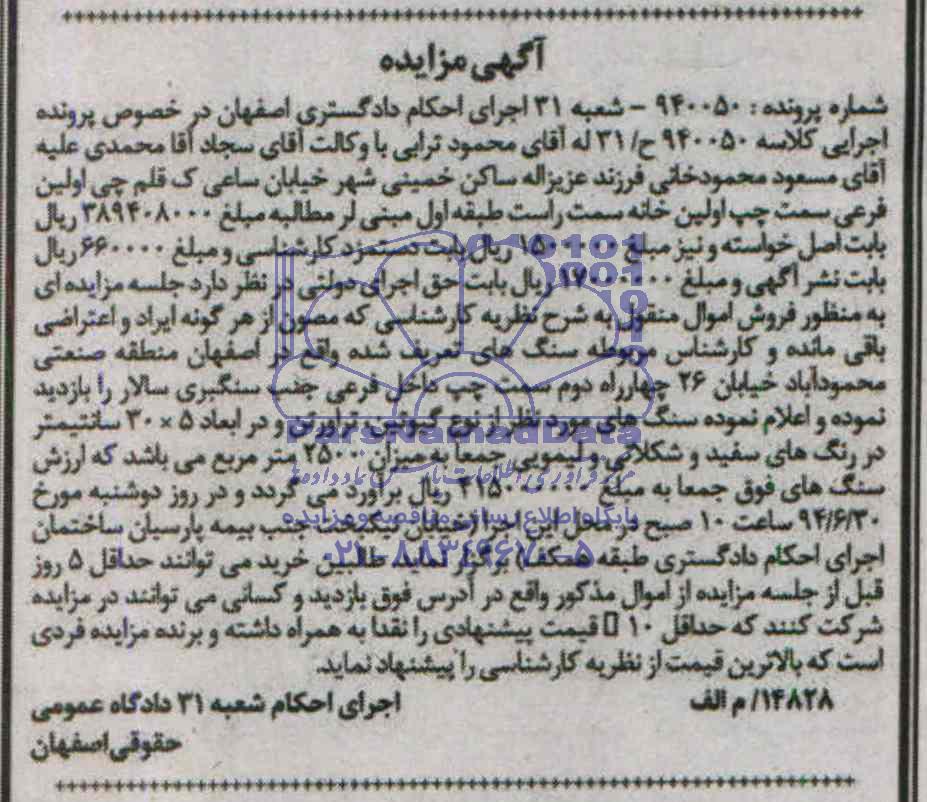 آگهی مزایده
شماره پرونده : ۹۴۰۰۵۰ - شعبه ۳۱ اجرای احکام دادگستری اصفهان در خصوص پرونده
اجرایی کلاسه ۹۴۰۰۵۰ ح/ ۳۱ له آقای محمود ترابی با وکالت آقای سجاد آقا محمدی علیه
آقای مسعود محمودخانی فرزند عزیزاله ساکن خمینی شهر خیابان ساعی ک قلم چی اولین
فرعی سمت چپ اولین خانه سمت راست طبقه اول مبنی لر مطالبه مبلغ ۳۸۹۴۰۸۰۰۰ ریال
بابت اصل خواسته و نیز مبلغ ۱۵۰۰۰۰۰ ریال بابت دستمزد کارشناسی و مبلغ ۶۶۰۰۰۰ ریال
بابت نشر آگهی و مبلغ ۱۷۰۰۰۰۰۰ ریال بابت حق اجرای دولتی در نظر دارد جلسه مزایده ای
به منظور فروش اموال منقول به شرح نظریه کارشناسی که مصون از هر گونه ایراد و اعتراضی
باقی مانده و کارشناس مربوطه سنگ های تعریف شده واقع در اصفهان منطقه صنعتی
محمودآباد خیابان ۲۶ چهارراه دوم سمت چپ داخل فرعی جنب سنگبری سالار را بازدید
نموده و اعلام نموده سنگ های مورد نظر از نوع گیوتین تراورتن و در ابعاد ۵ × ۳۰ سانتیمتر
در رنگ های سفید و شکلاتی و لیمویی جمعا به میزان ۲۵۰۰ متر مربع می باشد که ارزش
سنگ های فوق جمعا به مبلغ ریال برآورد می گردد و در روز دوشنبه مورخ
۹۴/۶/۳۰ ساعت ۱۰ صبح در محل این اجرا جنب بیمه پارسیان ساختمان
اجرای احکام دادگستری طبقه همکف) برگزار نماید. طالبین خرید می توانند حداقل ۵ روز
قبل از جلسه مزایده از اموال مذکور واقع در آدرس فوق بازدید و کسانی می توانند در مزایده
شرکت کنند که حداقل ۱۰ قیمت پیشنهادی را نقدا به همراه داشته و برنده مزایده فردی
است که بالاترین قیمت از نظریه کارشناسی را پیشنهاد نماید.
۱۴۸۲۸/ م الف
اجرای احکام شعبه ۳۱ دادگاه عمومی
حقوقی اصفهان
ParsNamadData
پایگاه اطلاع رسانی مناقصه و مزایده
۰۲۱-۸۸۳۴۹۶۷۰-۵